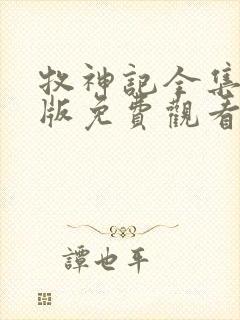 牧神記全集
版免費觀看
譚也平